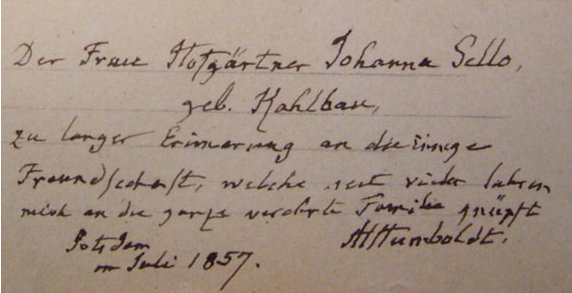 Der Frau Hofgärtner Johanna Sello,
geb. Kahlbau,
zu langer Erinnerung an die innige
Freundschaft, welche seit vielen Jahren
mich an die ganze verehrte Familie knüpft
Potsdam
im Juli 1857.
AlHumboldt.